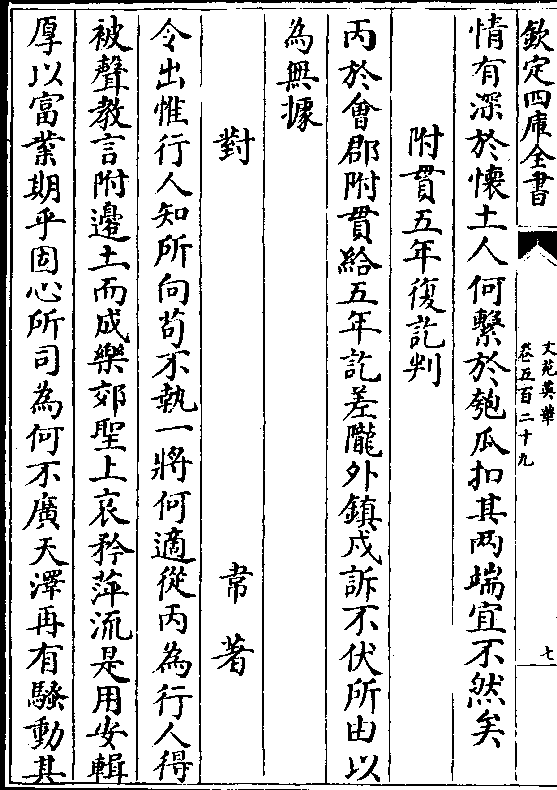 欽定四庫全書
文苑英華
卷五百二十九
七
情有深於懷土人何繫於匏瓜扣其两端宜不然矣
附貫五年復訖判
丙於會郡附貫給五年訖差隴外鎮戍訴不伏所由以
為無據
對
常著
令出惟行人知所向苟不執一將何適從丙為行人得
被聲教言附邊土而成樂郊聖上哀矜萍流是用安輯
厚以富業期乎固心所司為何不廣天澤再有騷動其